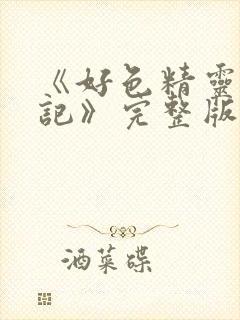 《好色精靈
記》完整版
酒菜碟